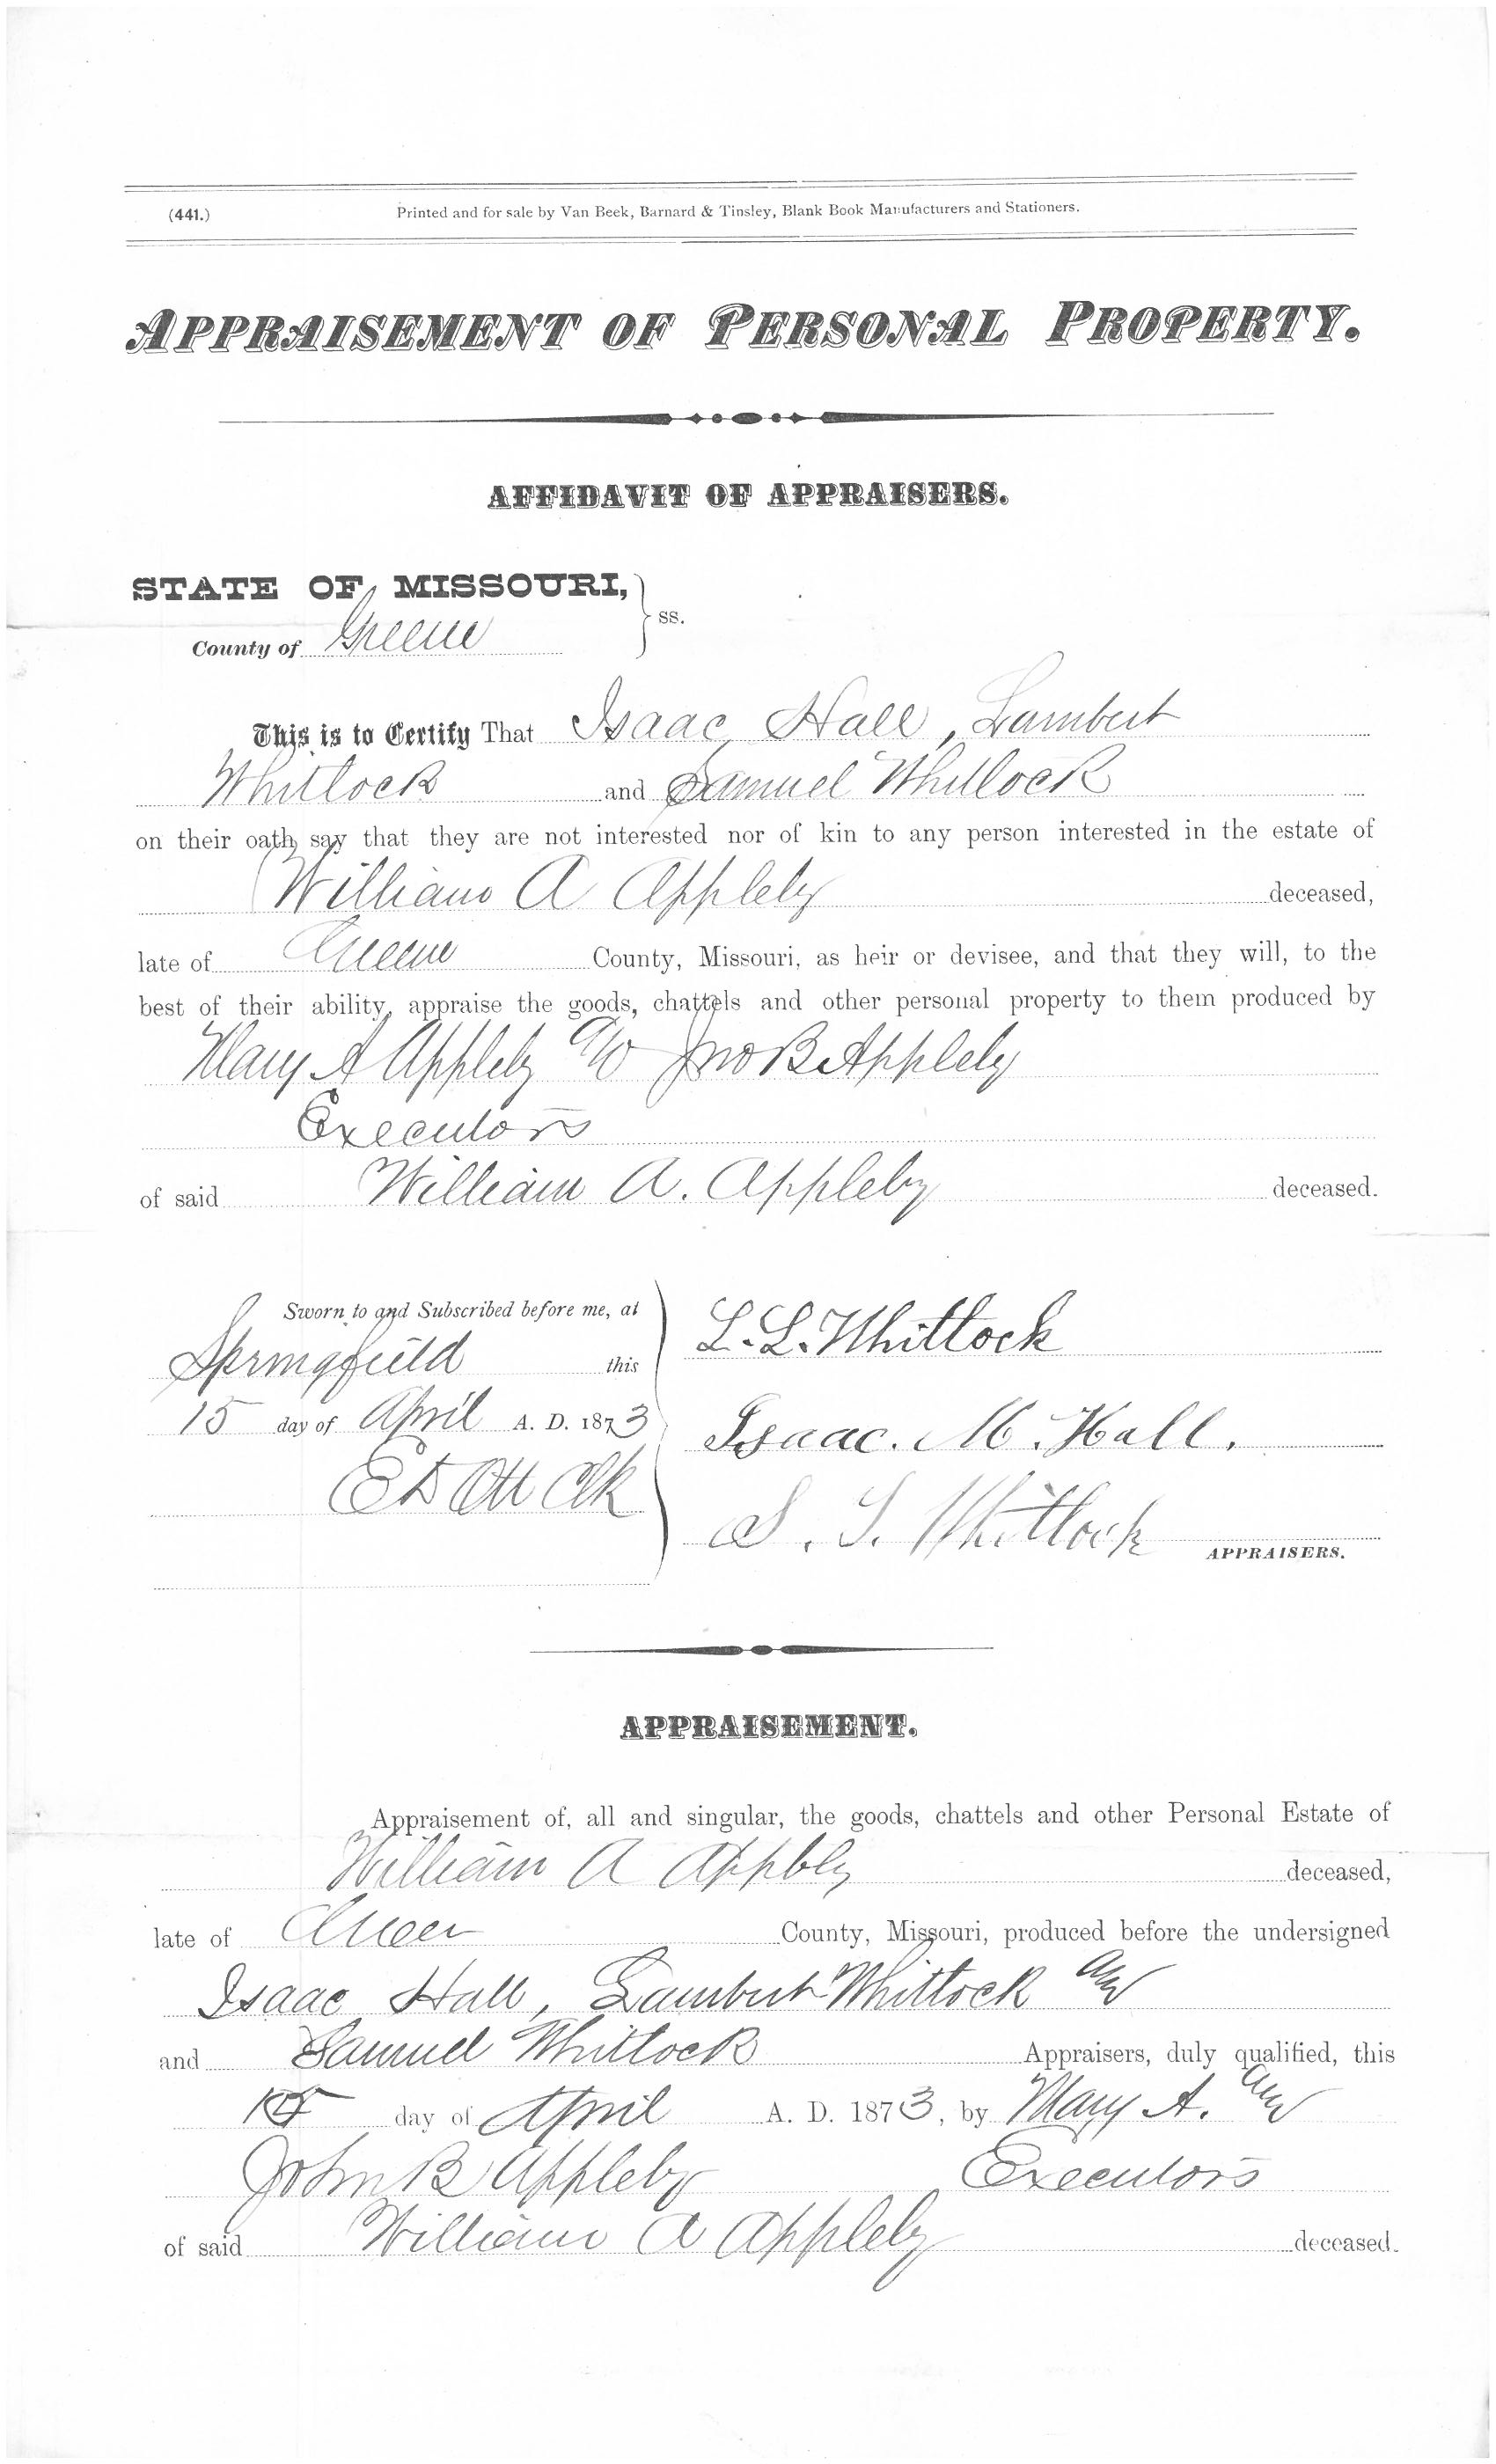 (441.) Printed and for sale by Van Beek, Barnard & Tinsley, Blank Book Manufacturers and Stationers.
APPRAISEMENT OF PERSONAL PROPERTY.
AFFIDAVIT OF APPRAISERS.
STATE OF MISSOURI,
County of Greene } ss.
This is to Certify That Isaac Hall, Lambert
Whitlock and Samuel Whitlock
on their oath say that they are not interested nor of kin to any person interested in the estate of
William A Appleby deceased,
late of Greene County, Missouri, as heir or devisee, and that they will, to the
best of their ability, appraise the goods, chattels and other personal property to them produced by
Mary A Appleby Jno B Appleby
Executors
of said William A. Appleby deceased.
Sworn to and Subscribed before me, at
Springfield this
15 day of April A. D. 1873
E D Ott Clk
L. L. Whitlock
Isaac. M. Hall.
S. S. Whitlock
APPRAISERS.
APPRAISEMENT.
Appraisement of, all and singular, the goods, chattels and other Personal Estate of
William A Appleby deceased,
late of Green County, Missouri, produced before the undersigned
Isaac Hall, Lambert Whitlock and
and Samuel Whitlock Appraisers, duly qualified, this
15 day of April A. D. 1873, by Mary A. and
John B Appleby Executors
of said William A Appleby deceased.